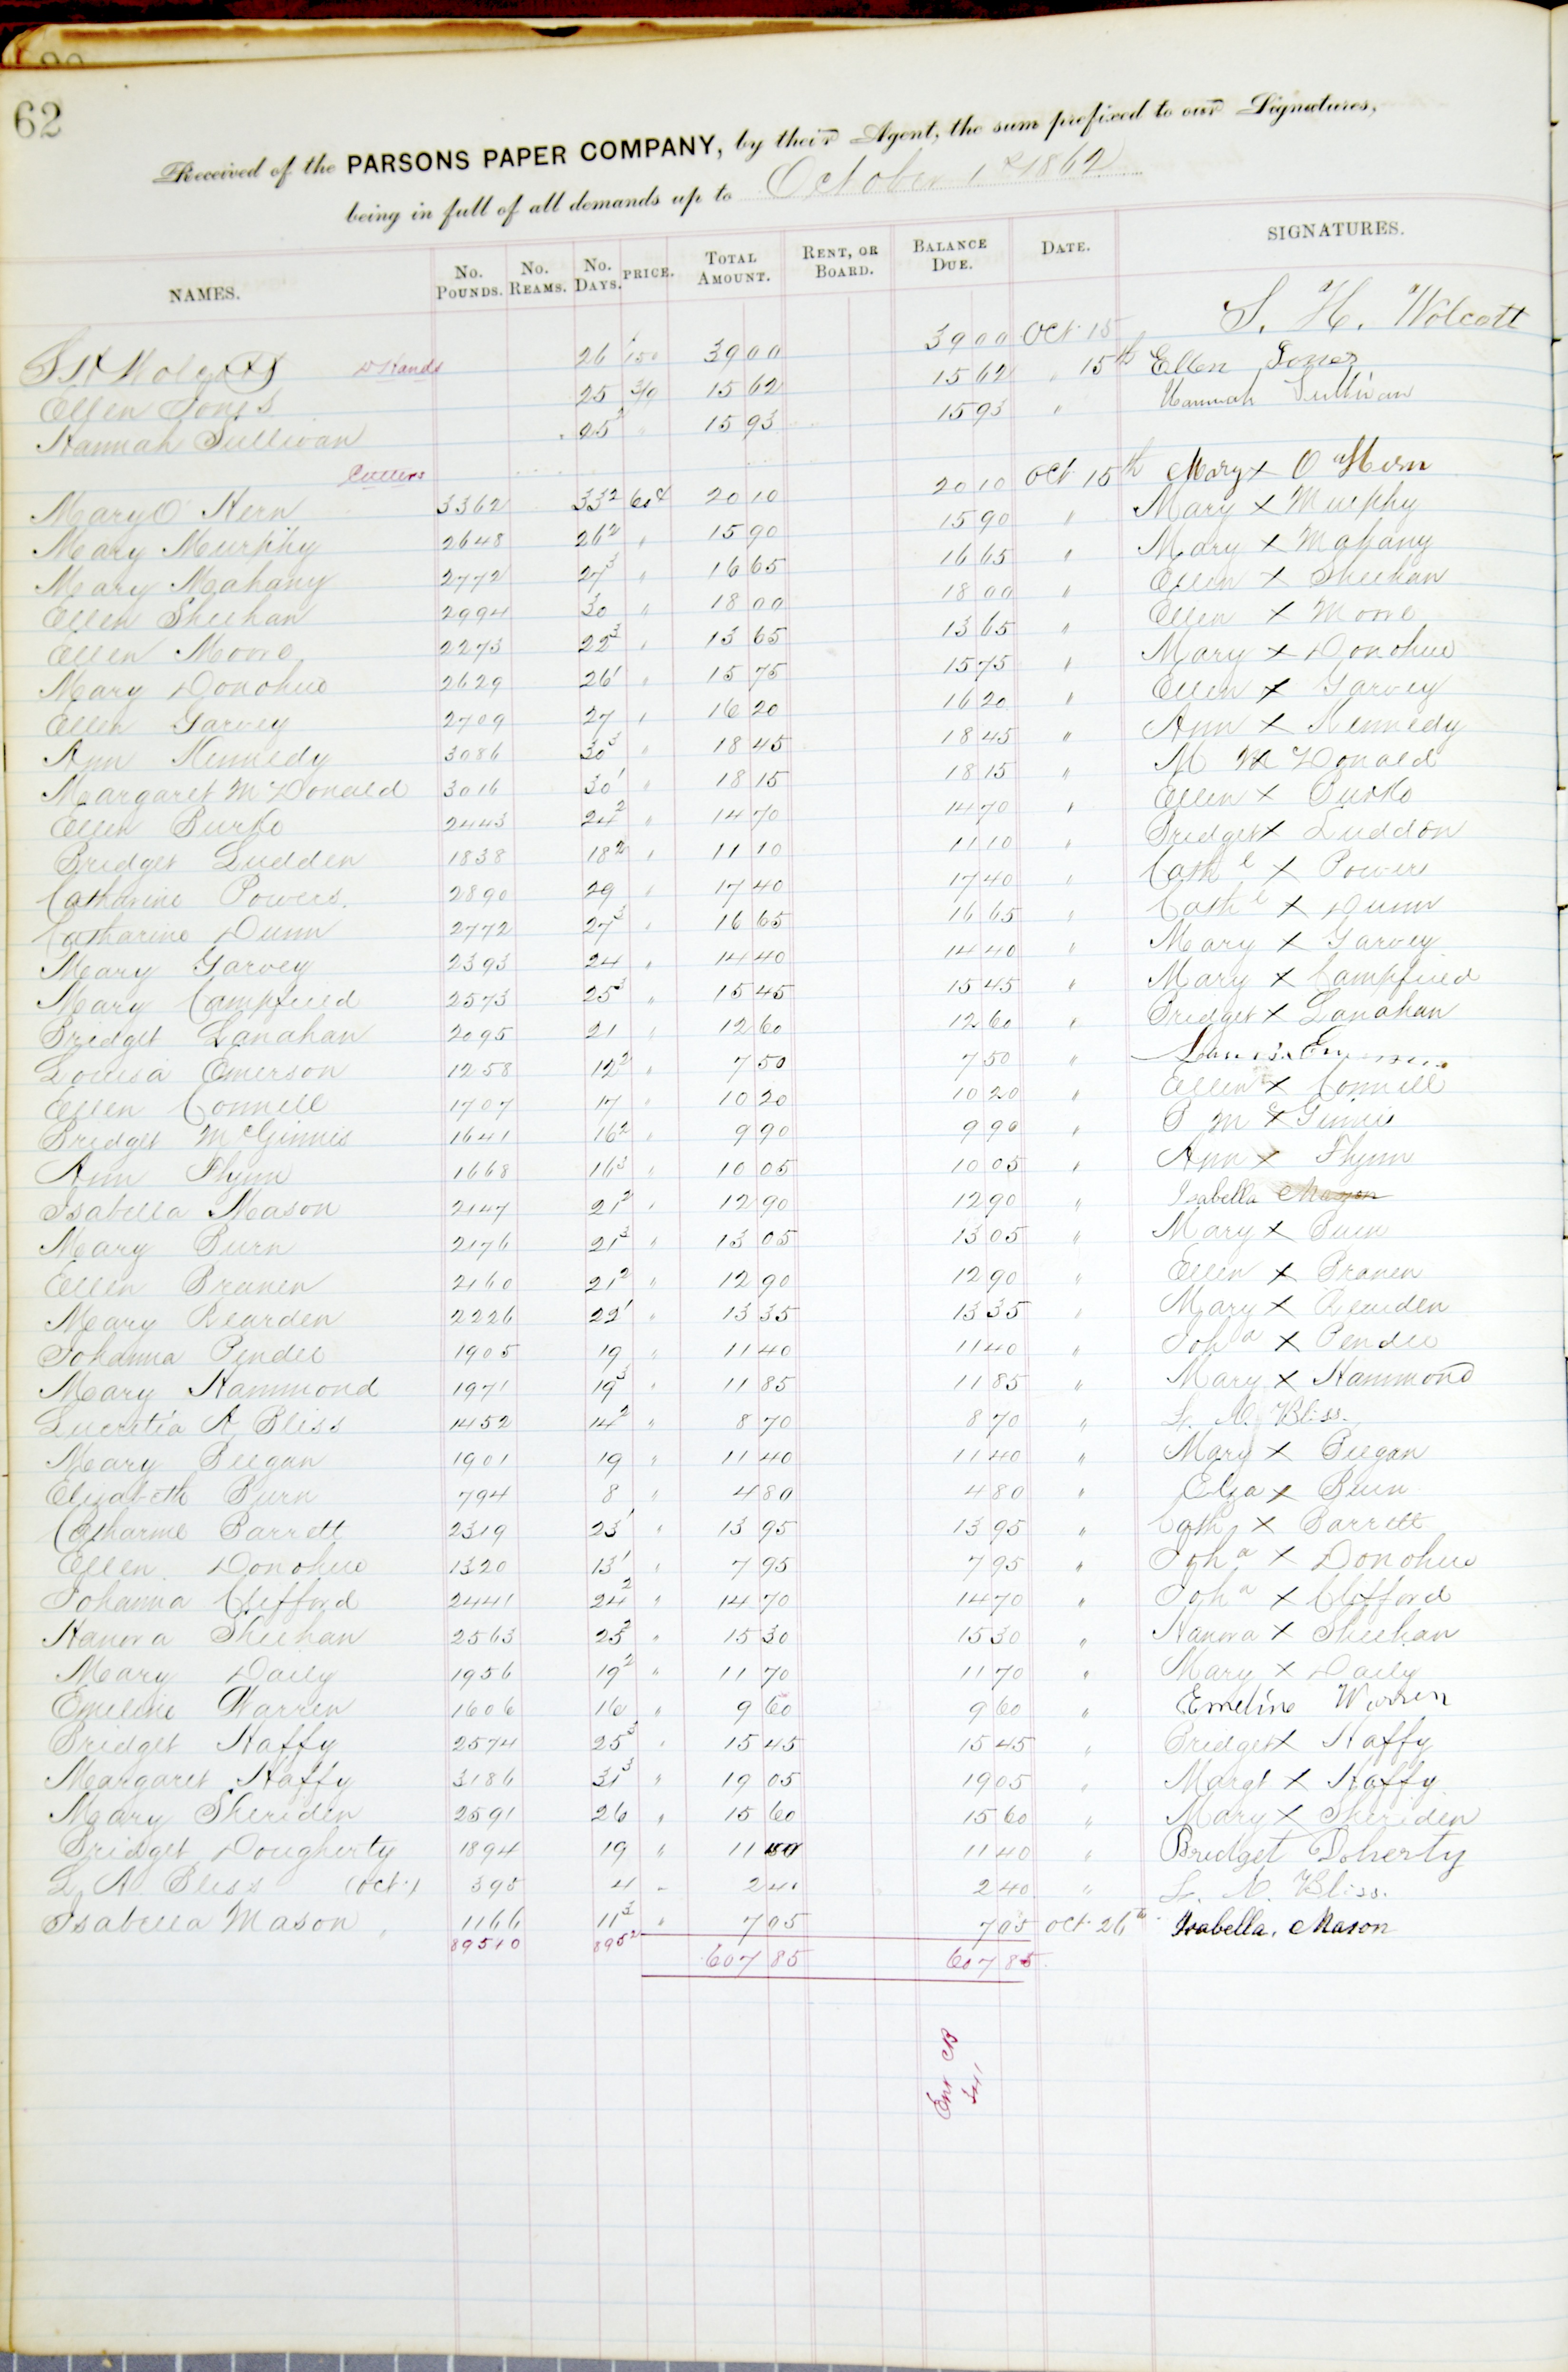 62
Received of the PARSONS PAPER COMPANY, by their Agent, the sum prefixed to our Signatures,
being in full of all demands up to October 1st 1862
NAMES. No. POUNDS. No. REAMS. No. DAYS. PRICE. TOTAL AMOUNT. RENT, OR BOARD. BALANCE DUE. DATE. SIGNATURES.
S H Wolcott 26 150 39 00 39 00 Oct 15 S. H. Wolcott
D Hands
Ellen Jones 25 3/9 15 62 15 62 " 15th Ellen Jones
Hannah Sullivan 25 2 " 15 93 15 93 " Hannah Sullivan
Cutters
Mary O Hern 3362 33 2 60c 20 10 20 10 Oct 15th Mary x O Hern
Mary Murphy 2648 26 2 " 15 90 15 90 " Mary x Murphy
Mary Mahany 2772 27 3 " 16 65 16 65 " Mary x Mahany
Ellen Sheehan 2994 30 " 18 00 18 00 " Ellen x Sheehan
Ellen Moore 2273 22 3 " 13 65 13 65 " Ellen x Moore
Mary Donohue 2629 26 1 " 15 75 15 75 " Mary x Donohue
Ellen Garvey 2709 27 " 16 20 16 20 " Ellen x Garvey
Ann Kennedy 3086 30 3 " 18 45 18 45 " Ann x Kennedy
Margaret McDonald 3016 30 1 " 18 15 18 15 " M Mc Donald
Ellen Burke 2443 24 2 " 14 70 14 70 " Ellen x Burke
Bridget Ludden 1838 18 2 " 11 10 11 10 " Bridget x Luddon
Catharine Powers. 2890 29 " 17 40 17 40 " Cath e x Powers
Catharine Dunn 2772 27 3 " 16 65 16 65 " Cath e x Dunn
Mary Garvey 2393 24 " 14 40 14 40 " Mary x Garvey
Mary Campfield 2573 25 3 " 15 45 15 45 " Mary x Campfield
Bridget Lanahan 2095 21 " 12 60 12 60 " Bridget x Lanahan
Louisa Emerson 1258 12 2 " 7 50 7 50 "
Ellen Connell 1707 17 " 10 20 10 20 " Ellen x Connell
Bridget McGinnis 1641 16 2 " 9 90 9 90 " B Mc x Ginnis
Ann Flynn 1668 16 3 " 10 05 10 05 " Ann x Flynn
Isabella Mason 2147 21 2 " 12 90 12 90 " Isabella Mason
Mary Burn 2176 21 3 " 13 05 13 05 " Mary x Burn
Ellen Branen 2160 21 2 " 12 90 12 90 " Ellen x Branen
Mary Rearden 2226 22 1 " 13 35 13 35 " Mary x Rearden
Johanna Pender 1905 19 " 11 40 11 40 " Joh a x Pender
Mary Hammond 1971 19 3 " 11 85 11 85 " Mary x Hammond
Lucretia A Bliss 1452 14 2 " 8 70 8 70 " L. A. Bliss.
Mary Beegan 1901 19 " 11 40 11 40 " Mary x Beegan
Elizabeth Burn 794 8 " 4 80 4 80 " Elza x Burn
Catharine Barrett 2319 23 1 " 13 95 13 95 " Cath x Barrett
Ellen Donohue 1320 13 1 " 7 95 7 95 " Joh a x Donohue
Johanna Clifford 2441 24 2 " 14 70 14 70 " Joh a x Clifford
Hanora Sheehan 2563 25 2 " 15 30 15 30 " Hanora x Sheehan
Mary Daily 1956 19 2 " 11 70 11 70 " Mary x Daily
Emeline Warren 1606 16 " 9 60 9 60 " Emeline Warren
Bridget Haffy 2574 25 3 " 15 45 15 45 " Bridget x Haffy
Margaret Haffy 3186 31 3 " 19 05 19 05 " Margt x Haffy
Mary Sheriden 2591 26 " 15 60 15 60 " Mary x Sheriden
Bridget Dougherty 1894 19 " 11 40 11 40 " Bridget Doherty
L. A. Bliss (Oct.) 395 4 " 2 40 2 40 " L. A. Bliss.
Isabella Mason 1166 11 3 " 7 05 7 05 Oct 26th Isabella, Mason
89510 895 2 607 85 607 85
Ent CB
341